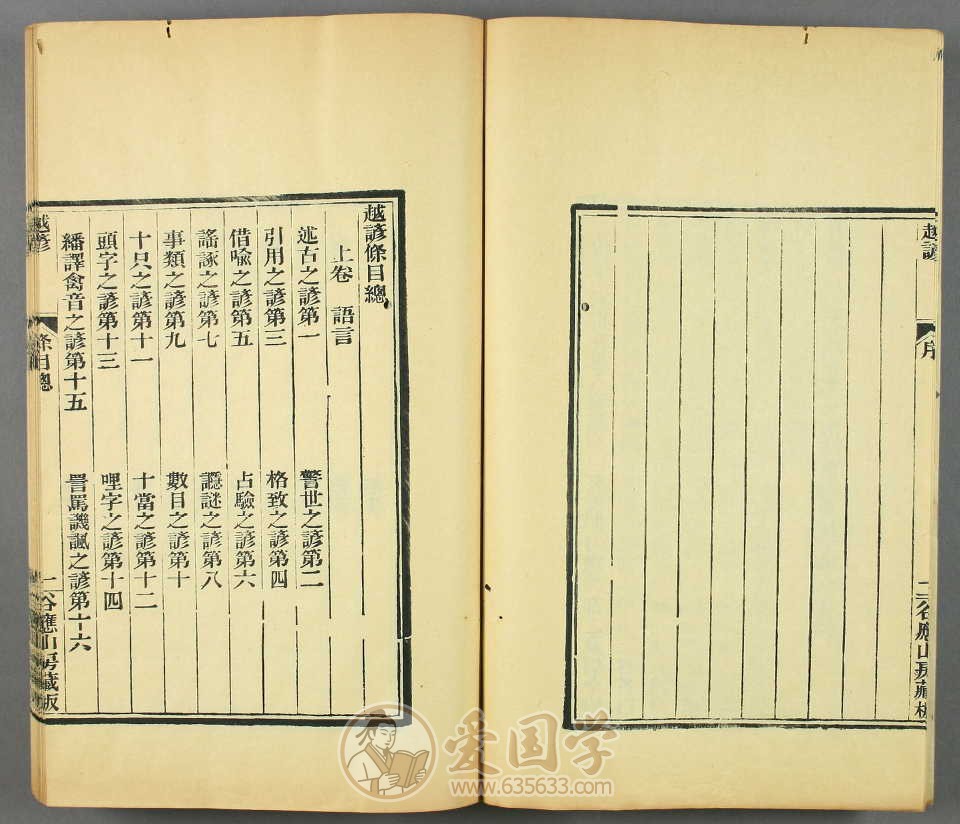 越諺
序
二
谷應山房藏板
越諺條目總
上卷 語言
述古之諺第一 警世之諺第二
引用之諺第三 格致之諺第四
借喻之諺第五 占驗之諺第六
謠諑之諺第七 讔謎之諺第八
事類之諺第九 數目之諺第十
十只之諺第十一 十當之諺第十二
頭字之諺第十三 哩字之諺第十四
繙譯禽音之諺第十五 詈罵譏諷之諺第十六
越諺
條目總
一
谷應山房藏板
爱国学
www.635633.com